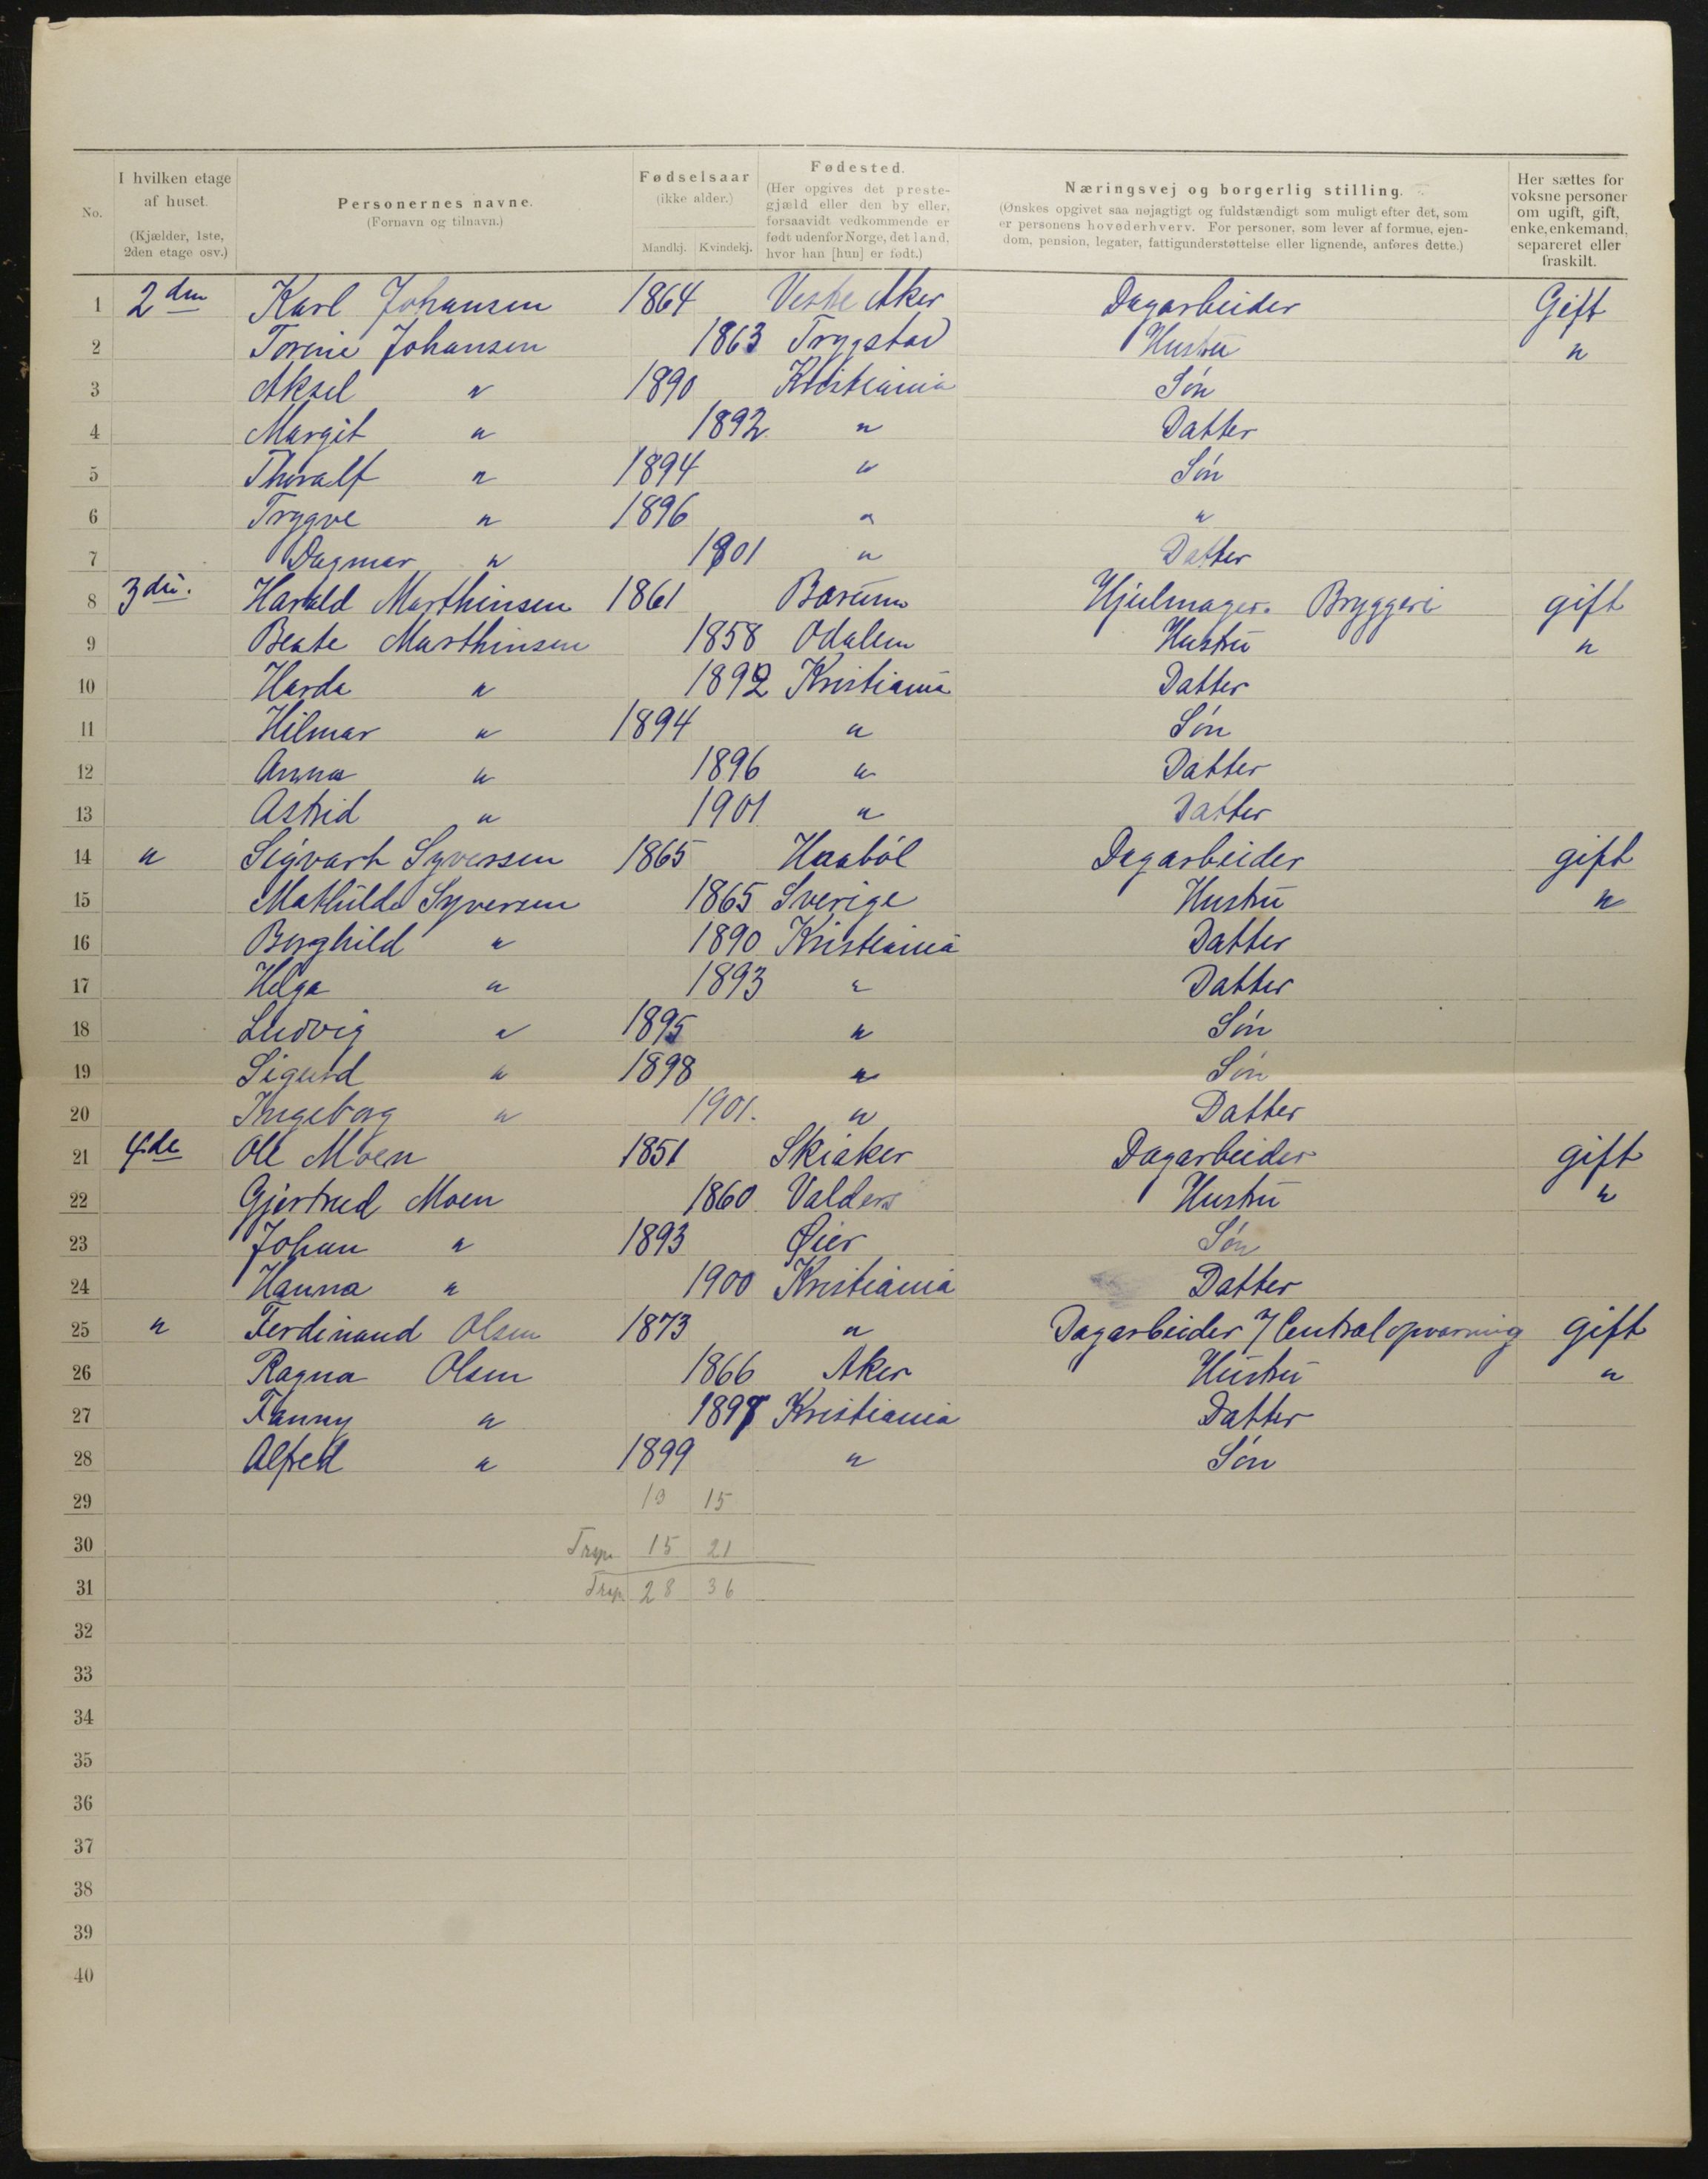 No.
I hvilken etage af huset. (Kjælder, 1ste, 2den etage osv.)
Personernes navne. (Fornavn og tilnavn.)
Fødselsaar (ikke alder.) Mandkj. Kvindekj.
Fødested. (Her opgives det prestegjæld eller den by eller, forsaavidt vedkommende er født udenfor Norge, det land, hvor han [hun] er født.)
Næringsvej og borgerlig stilling. (Ønskes opgivet saa nøjagtigt og fuldstændigt som muligt efter det, som er personens hovederhverv. For personer, som lever af formue, ejendom, pension, legater, fattigunderstøttelse eller lignende, anføres dette.)
Her sættes for voksne personer om ugift, gift, enke, enkemand, separeret eller fraskilt.
1 2den Karl Johansen 1864 Vestre Aker Dagarbeider Gift
2 Torine Johansen 1863 Trygstad Hustru "
3 Aksel " 1890 Kristiania Søn
4 Margit " 1892 " Datter
5 Thoralf " 1894 " Søn
6 Trygve " 1896 " "
7 Dagmar " 1901 " Datter
8 3die. Harald Marthinsen 1861 Barum Hjulmager. Bryggeri gift
9 Beate Marthinsen 1858 Odalen Hustru "
10 Harda " 1892 Kristiania Datter
11 Hilmar " 1894 " Søn
12 Anna " 1896 " Datter
13 Astrid " 1901 " Datter
14 " Sigvart Syversen 1865 Haabøl Dagarbeider gift
15 Mathilde Syversen 1865 Sverige Hustru "
16 Borghild " 1890 Kristiania Datter
17 Helga " 1893 " Datter
18 Ludvig " 1895 " Søn
19 Sigurd " 1898 " Søn
20 Ingeborg " 1901. " Datter
21 4de Ole Moen 1851 Skiaker Dagarbeider gift
22 Gjertrud Moen 1860 Valders Hustru "
23 Johan " 1893 Øier Søn
24 Hanna " 1900 Kristiania Datter
25 " Ferdinand Olsen 1873 " Dagarbeider / Centralopvarming gift
26 Ragna Olsen 1866 Aker Hustru "
27 Fanny " 1897 Kristiania Datter
28 Alfred " 1899 " Søn
29 13 15
30 Trsp. 15 21
31 Trsp. 28 36
32
33
34
35
36
37
38
39
40